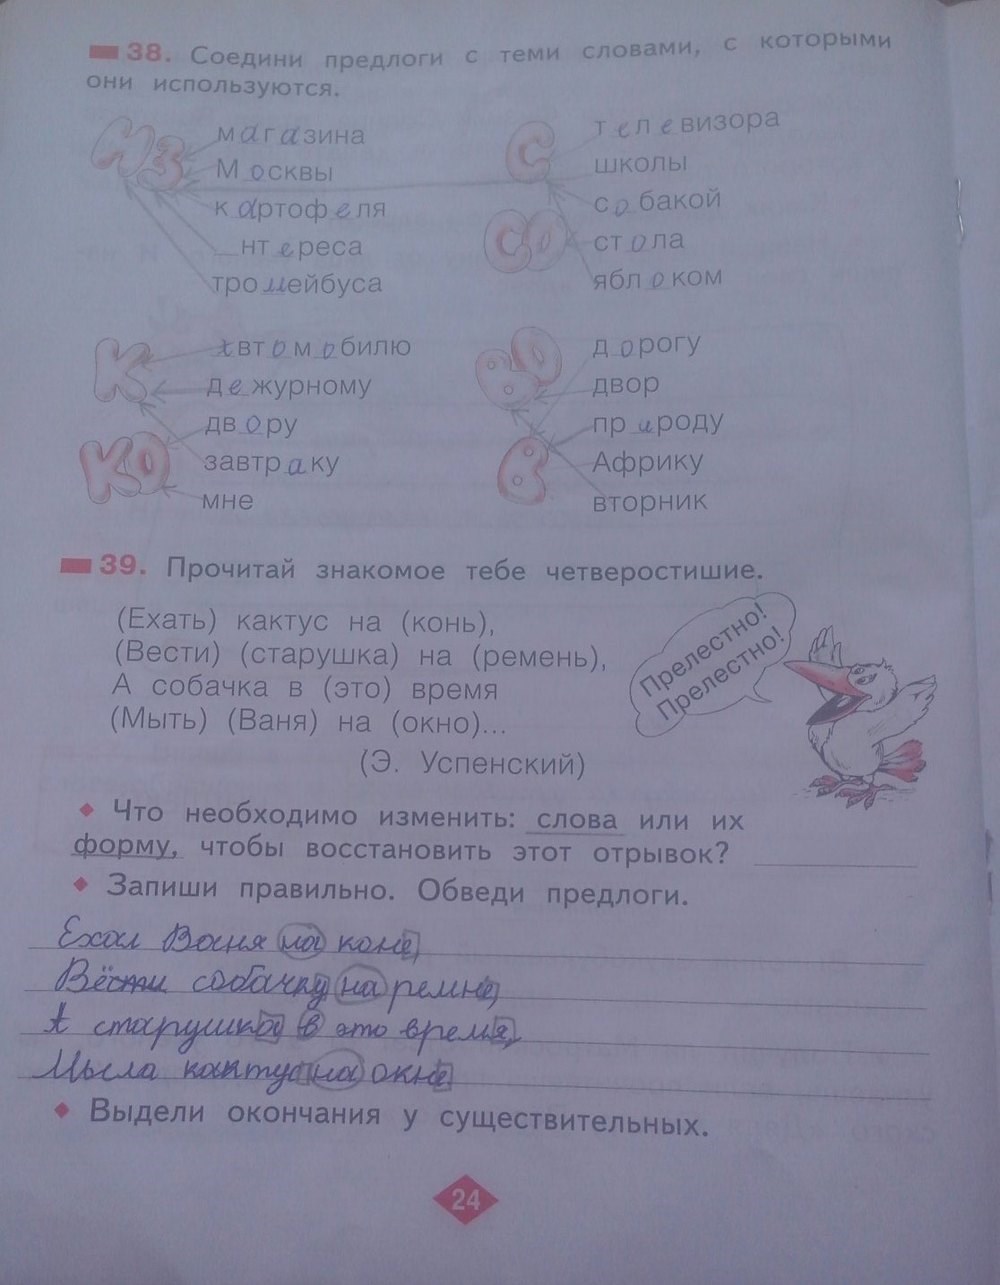 38. Соедини предлоги с теми словами, с которыми
они используются.
ИЗ
магазина
Москвы
картофеля
_нтереса
тролейбуса
С
СО
телевизора
школы
собакой
стола
яблоком
К
КО
автомобилю
дежурному
двору
завтраку
мне
ВО
В
дорогу
двор
природу
Африку
вторник
39. Прочитай знакомое тебе четверостишие.
(Ехать) кактус на (конь),
(Вести) (старушка) на (ремень),
А собачка в (это) время
(Мыть) (Ваня) на (окно)...
(Э. Успенский)
Прелестно!
Прелестно!
Что необходимо изменить: слова или их
форму, чтобы восстановить этот отрывок?
Запиши правильно. Обведи предлоги.
Ехал Ваня на коне
Вёсти собачку на ремне,
А старушка в это время,
Мыла кактус на окне
Выдели окончания у существительных.
24